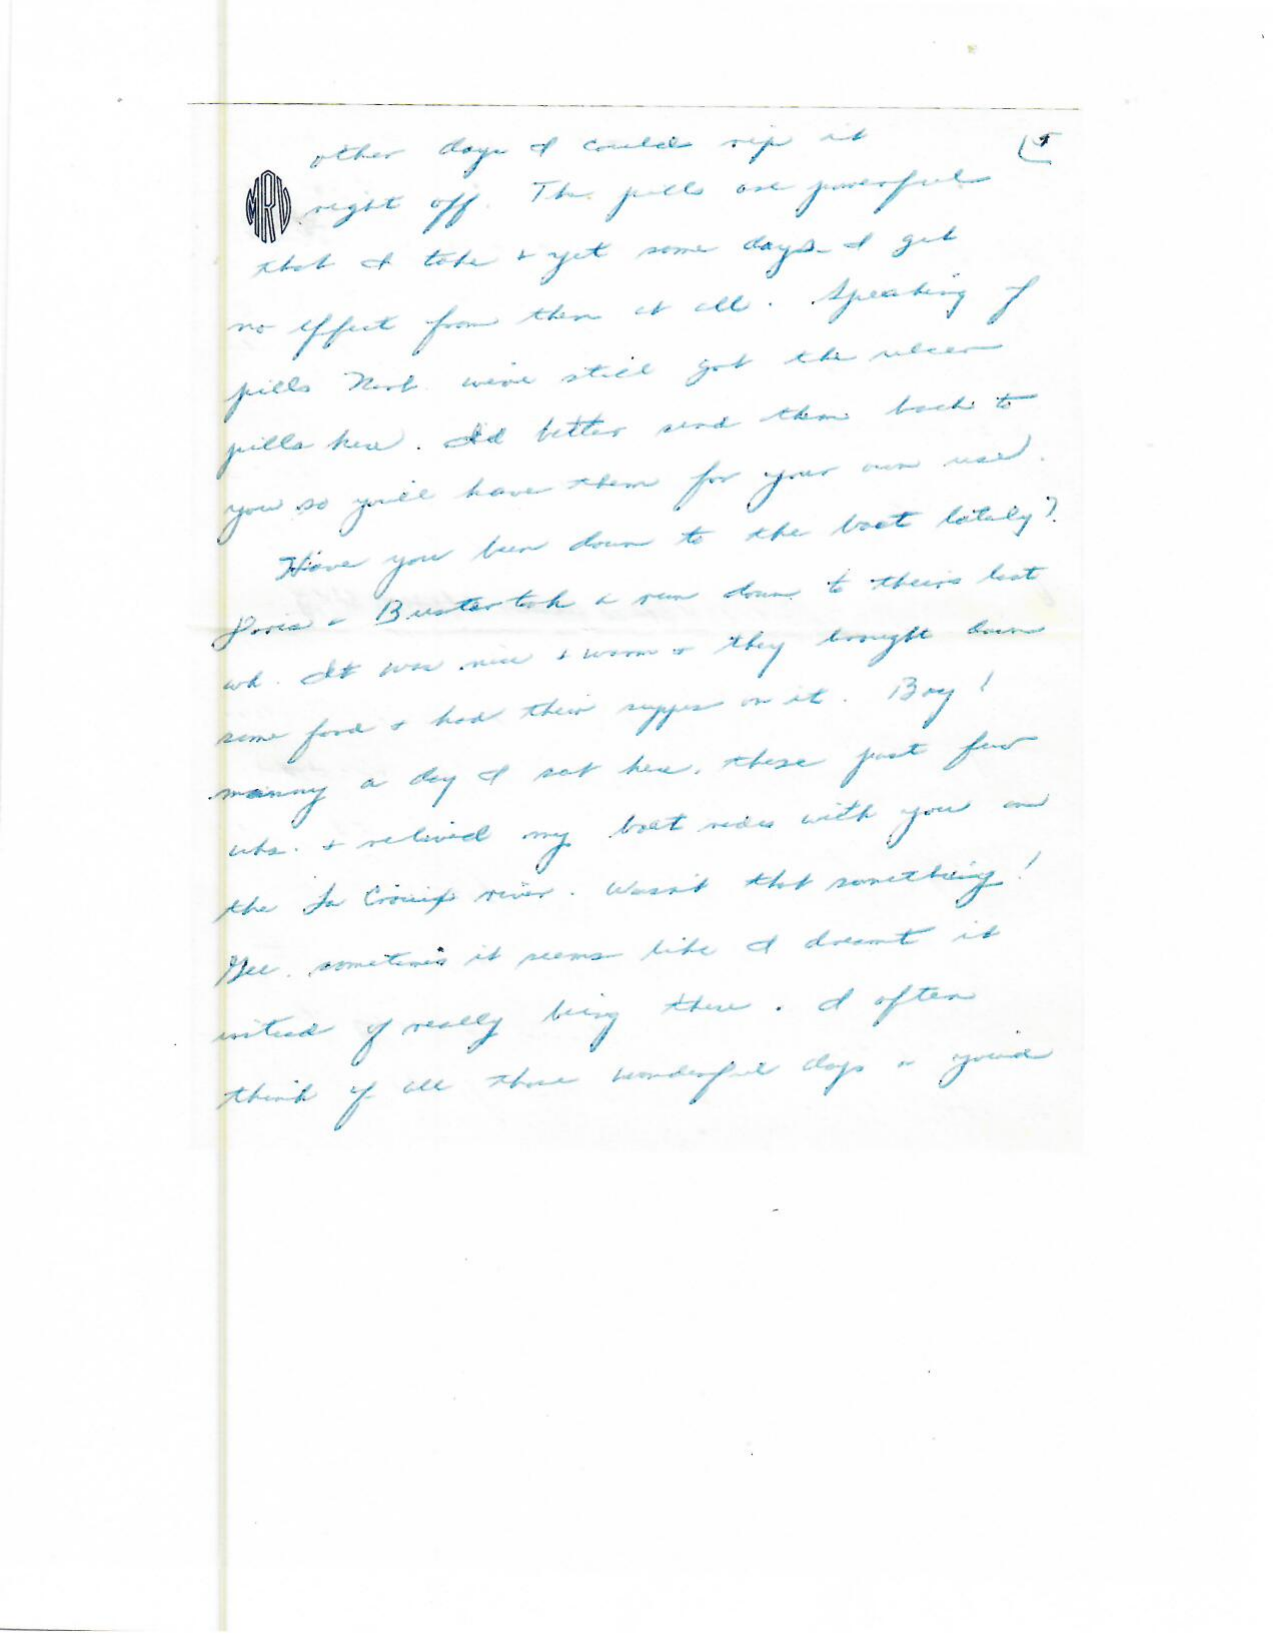 other days I could rip it
5
MRV
right off. The pills are powerful
that I take & yet some days I get
no effect from them at all. Speaking of
pills Norb we've still got the ulcer
pills here. I'd better send them back to
you so you'll have them for your own use.
Have you been down to the boat lately?
Doris & Buster took a run down to theirs last
wk. It was nice & warm & they brought down
some food & had their supper on it. Boy!
manny a day I sat here, these past few
wks. & relived my boat rides with you on
the La Croix river. Wasn't that something!
Gee. sometimes it seems like I dreamt it
instead of really being there. I often
think of all those wonderful days & you'd